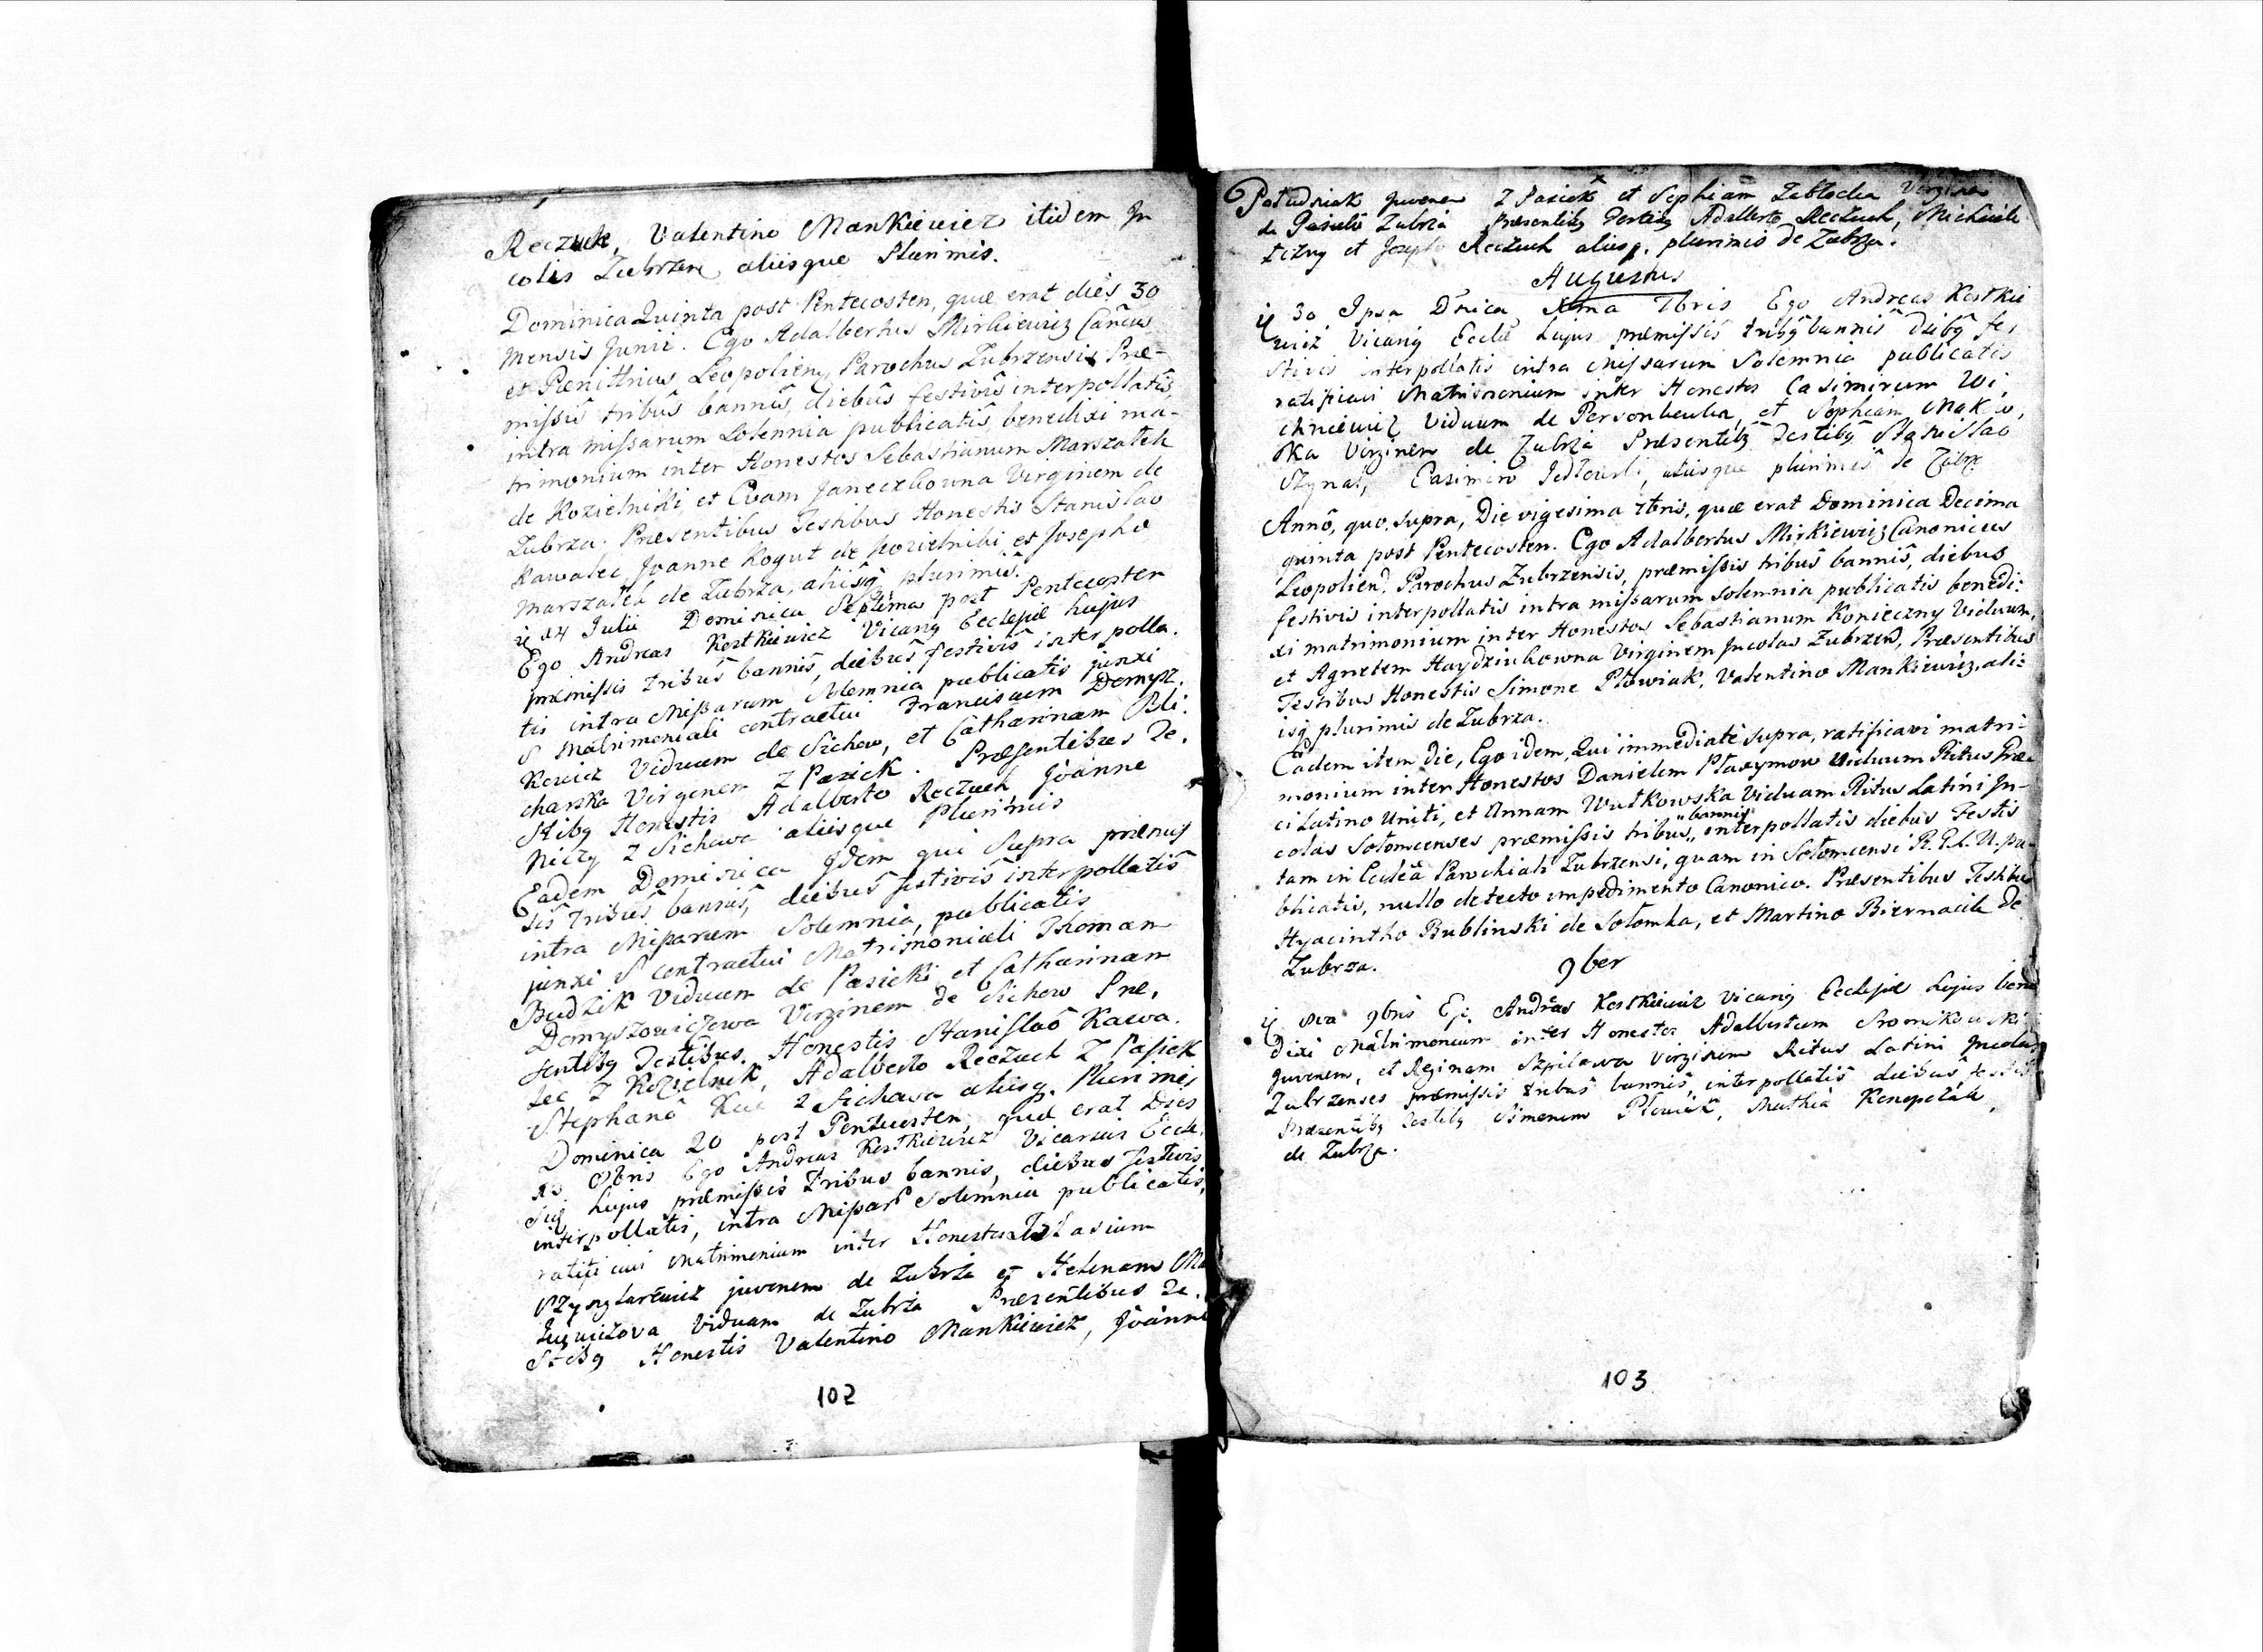 Reczuk, Valentino Mankiewicz itidem In
colis Zubrzen, aliisque Plurimis.
Dominica Quinta post Pentecosten, quæ erat dies 30
Mensis Junii. Ego Adalbertus Mirkiewicz Cancus
et Pœnittrius Leopolien, Parochus Zubrzensis Præ-
missis tribus bannis, diebus festivis interpollatis,
intra missarum Solennia publicatis benedixi ma-
trimonium inter Honestos Sebastianum Marszałek
de Kozielniki, et Evam Janeczkowna Virginem de
Zubrza; Præsentibus Testibus Honestis Stanislao
Kawalec, Joanne Kogut de Kozielniki et Josepho
Marszałek de Zubrza, aliisq plurimis.
14 Julii Dominica Septima post Pentecosten
Ego Andreas Kostkiewicz Vicarig Ecclesiæ hujus
præmissis tribus bannis, diebus festivis interpolla.
tis intra Missarum Solemnia publicatis junxi
S Matrimoniali contractui Franciscum Domysz.
Kewicz Viduum de Sichow, et Catharinam Bli.
charska Virginem z Pasiek. Præsentibus Te.
stibg Honestis Adalberto Reczuch Joanne
Nilzy z Sichowa aliisque Plurimis
Eadem Dominica Idem qui Supra præmis
sis Tribus bannis, diebus festivis interpollatis
intra Missarum Solemnia, publicatis
junxi S contractui Matrimoniali Thomam
Budzik Viduum de Pasieki et Catharinam
Domyszowiczowa Virginem de Sichow Præ,
sentibg Testibus. Honestis Stanislao Kawa.
lec z Kozielnik, Adalberto Reczuch z Pasiek
Stephano z Sichowa aliisq. Plurimis
Dominica 20 post Pentecosten, quæ erat Dies
Obris Ego Andreas Kostkiewicz Vicarius Eccle,
hujus præmissis Tribus bannis, diebus festivis
interpollatis, intra Missar Solemnia publicatis,
ratificavi Matrimonium inter Honestos
juvenem de Zubrza et Helenam Ma
Viduam de Zubrza Præsentibus Te.
stibg Honestis Valentino Mankiewicz, Joanne
102
Patudniak Juvenem z Pasiek et Sophiam Zabłocka Virginem
de Zubrza Præsentibg Testibg Adalberto Reczuch, Michaele
et Josepho Reczuch aliisq. plurimis de Zubrza.
Augustus
30 Ipsa Dnica Xma Ego Andreas Kostkie
wicz Vicarig Eccliæ hujus præmissis tribg bannis diebg fes
tivis interpollatis intra Missarum Solemnia publicatis
ratificavi Matrimonium inter Honestos Casimirum Wi,
chniewicz Viduum de Personkowka, et Sophiam Makow,
ska Virginem de Zubrza Præsentibg Testibg Stanislao
Szynal, Casimiro Jedlowski, aliisque plurimis de Zubrz
Anno, quo supra, Die vigesima 7bris, quæ erat Dominica Decima
quinta post Pentecosten. Ego Adalbertus Mirkiewicz Canonicus
Leopolien, Parochus Zubrzensis, præmissis tribus bannis, diebus
festivis interpollatis intra missarum solemnia publicatis benedi:
xi matrimonium inter Honestos Sebastianum Konieczny Viduum,
et Agnetem Haydziuhowna Virginem Incolas Zubrzen, Præsentibus
Testibus Honestis Simone Płowiak, Valentino Mankiewicz, ali:
isq plurimis de Zubrza.
Eadem item die, Ego idem, Qui immediate supra, ratificavi matri:
monium inter Honestos Danielem Płaxymow Viduum Ritus Græ-
ci Latino Uniti, et Annam Wutkowska Viduam Ritus Latini In-
colas Sołomcenses præmissis tribus "bannis" interpollatis diebus Festis
tam in Ecclea Parochiali Zubrzensi, quam in Sołomcensi R. G. L. U. pu-
blicatis, nullo detecto impedimento Canonico. Præsentibus Testibus
Hyacintho Bublinski de Sołomka, et Martino Biernacik de
Zubrza.
9ber
9bris Ego Andreas Kostkiewicz Vicarig Ecclesiæ hujus bene
dixi Matrimonium inter Honestos Adalbertum Sromikowski
Juvenem, et Reginam Szpilowa Virginem Ritus Latini Incolas
Zubrzenses præmissis tribus bannis, interpollatis diebus festivis
Præsentibg Testibg Simonem Płowiak, Mathia Konopczak,
de Zubrza.
103